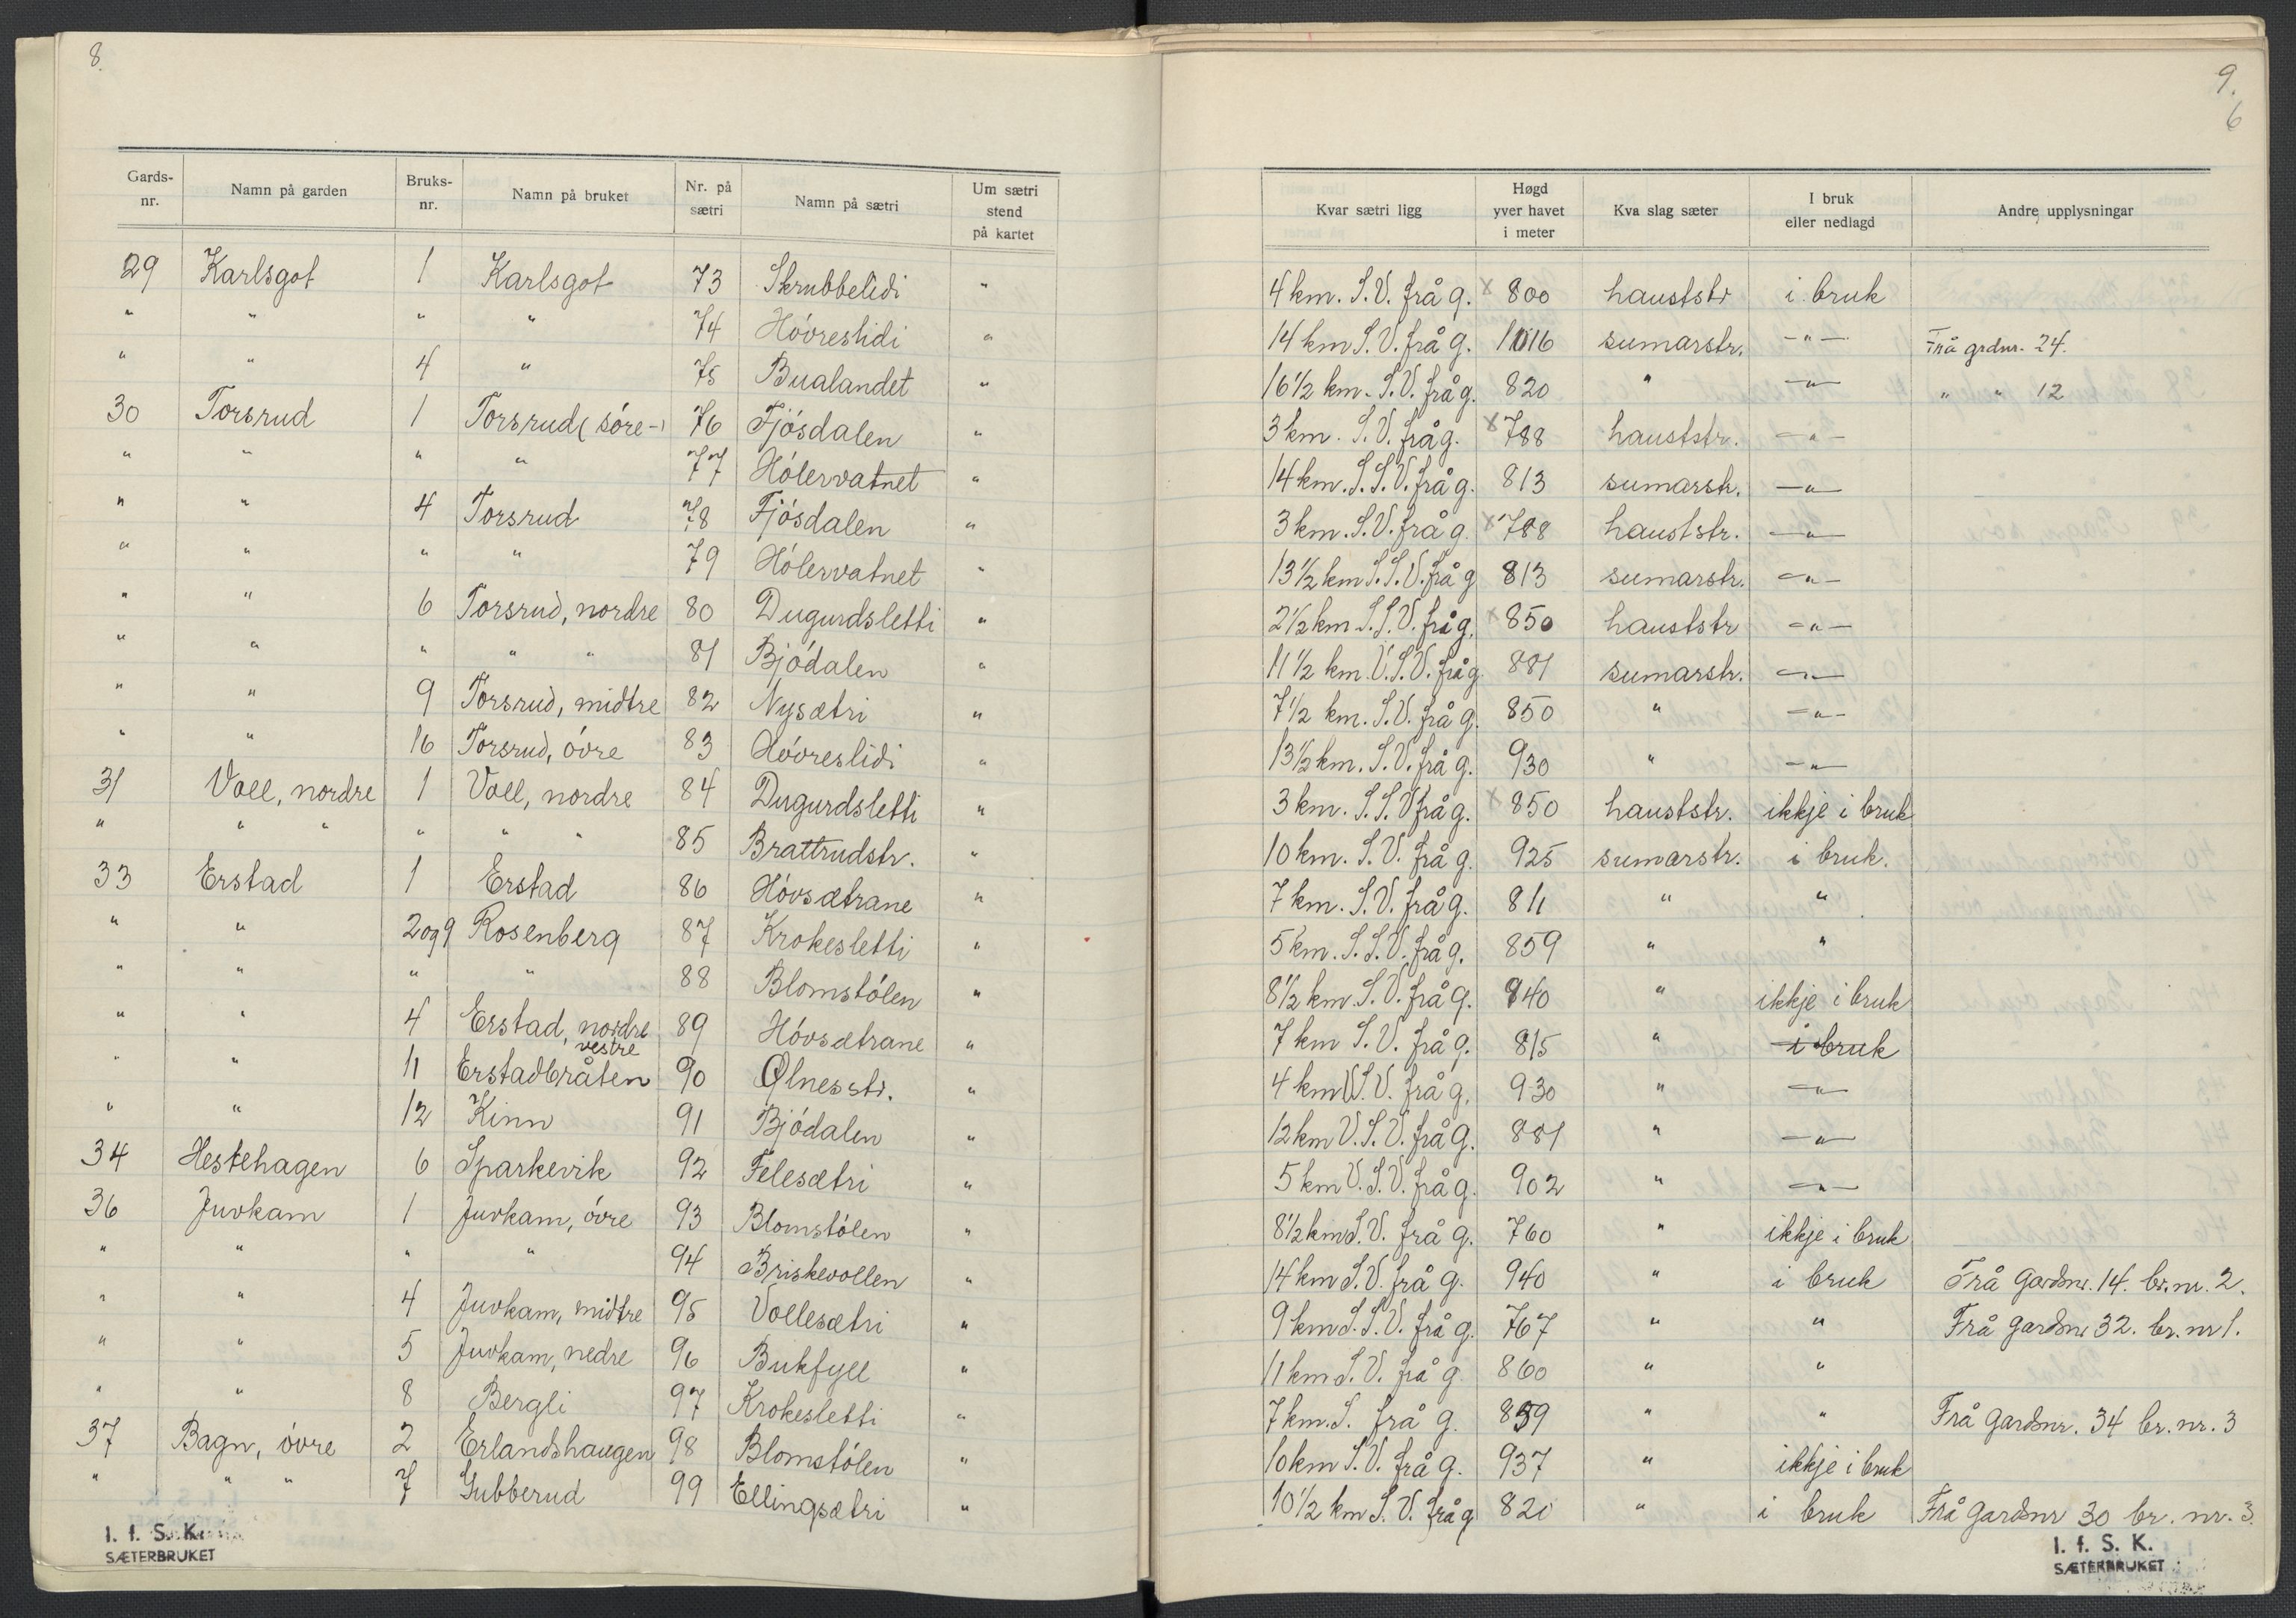 8.
Gards-nr. Namn på garden Bruks-nr. Namn på bruket Nr. på sætri Namn på sætri Um sætri stend på kartet
29 Karlsgot 1 Karlsgot 73 Skrubbelidi "
" " " " 74 Hóvreslidi "
" " 4 " 75 Bualandet "
30 Torsrud 1 Torsrud (sóre-) 76 Fjósdalen "
" " " " 77 Hólervatnet "
" " 4 Torsrud 78 Fjósdalen "
" " " " 79 Hólervatnet "
" " 6 Torsrud, nordre 80 Dugurdsletti "
" " " " " 81 Bjódalen "
" " 9 Torsrud, midtre 82 Nysætri "
" " 16 Torsrud, óvre 83 Hóvreslidi "
31 Voll, nordre 1 Voll, nordre 84 Dugurdsletti "
" " " " " " 85 Brattrudstr. "
33 Erstad 1 Erstad 86 Hóvsætrane "
" " 2 og 9 Rosenberg 87 Krokesletti "
" " " " 88 Blomstólen "
" " 4 Erstad, nordre 89 Hóvsætrane "
vestre
" " 11 Erstadbråten 90 Ølnesstr. "
" " 12 Kinn 91 Bjódalen "
34 Hestehagen 6 Sparkevik 92 Felesætri "
36 Juvkam 1 Juvkam, óvre 93 Blomstólen "
" " " " 94 Briskevollen "
" " 4 Juvkam, midtre 95 Vollesætri "
" " 5 Juvkam, nedre 96 Bukfyll "
" " 8 Bergli 97 Krokesletti "
37 Bagn, óvre 2 Erlandshaugen 98 Blomstólen "
" " " 7 Gubberud 99 Ellingsætri "
I. f. S. K.
SÆTERBRUKET
9.
6
Kvar sætri ligg Høgd yver havet i meter Kva slag sæter I bruk eller nedlagd Andre upplysningar
4 km. S.V. frå g. x 800 hauststr i bruk
14 km S.V. frå g. 1016 sumarstr. -"- Frå grdnr. 24.
16 1/2 km. S.V. frå g. 820 " -"- " " 12
3 km. S.V. frå g. x 788 hauststr. -"-
14 km. S.S.V. frå g. 813 sumarstr. -"-
3 km. S.V. frå g. x 788 hauststr. -"-
13 1/2 km S.S.V. frå g 813 sumarstr. -"-
2 1/2 km S.S.V. frå g. x 850 hauststr -"-
11 1/2 km. V.S.V. frå g. 881 sumarstr. -"-
7 1/2 km. S.V. frå g. 850 " -"-
13 1/2 km. S.V. frå g. 930 " -"-
3 km. S.S.V frå g. x 850 hauststr. ikkje i bruk
10 km. S.V. frå g. 925 sumarstr. i bruk.
7 km. S.V. frå g. 811 " "
5 km. S.S.V. frå g. 859 " "
8 1/2 km S.V. frå g. 940 " ikkje i bruk
7 km S.V. frå g. 815 " i bruk
4 km V.S.V. frå g. 930 " -"-
12 km V.S.V. frå g. 881 " -"-
5 km V.S.V. frå g. 902 " -"-
8 1/2 km S.V. frå g. 760 " ikkje i bruk
14 km S.V. frå g. 940 " i bruk Frå Gardsnr. 14. br.nr. 2.
9 km S.S.V. frå g. 767 " " Frå gardsnr 32. br. nr 1.
11 km S.V. frå g. 860 " "
7 km. S. frå g. 859 " " Frå gardsnr. 34 br. nr. 3
10 km S.V. frå g. 937 " ikkje i bruk
10 1/2 km S.V. frå g 820 " i bruk Frå gardsnr 30 br. nr. 3.
I. f. S. K.
SÆTERBRUKET